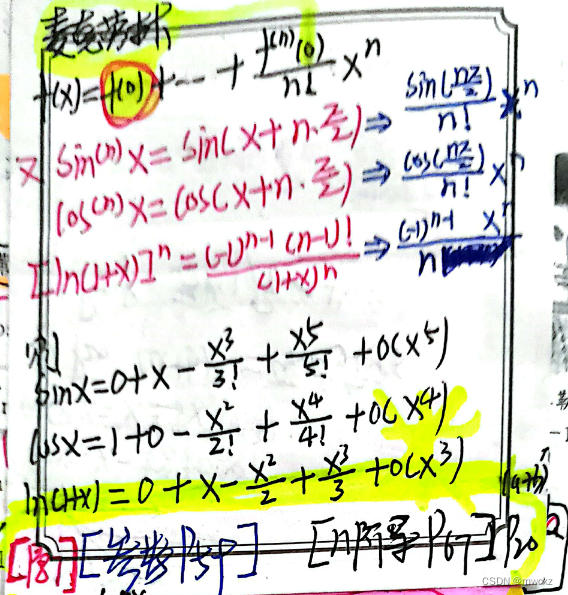 麦克劳林
f(x)=f(0)+…+ f⁽ⁿ⁾(0)/n! xⁿ
又 sin⁽ⁿ⁾x=sin(x+n·π/2)⇒ sin(nπ/2)/n! xⁿ
cos⁽ⁿ⁾x=cos(x+n·π/2)⇒ cos(nπ/2)/n! xⁿ
[ln(1+x)]ⁿ= (-1)ⁿ⁻¹(n-1)!/(1+x)ⁿ ⇒ (-1)ⁿ⁻¹ xⁿ/n
则
sinx=0+x-x³/3!+x⁵/5!+o(x⁵)
cosx=1+0-x²/2!+x⁴/4!+o(x⁴)
ln(1+x)=0+x-x²/2+x³/3+o(x³)
(a+b)ⁿ
[n阶导P67] P20
CSDN @mwokz